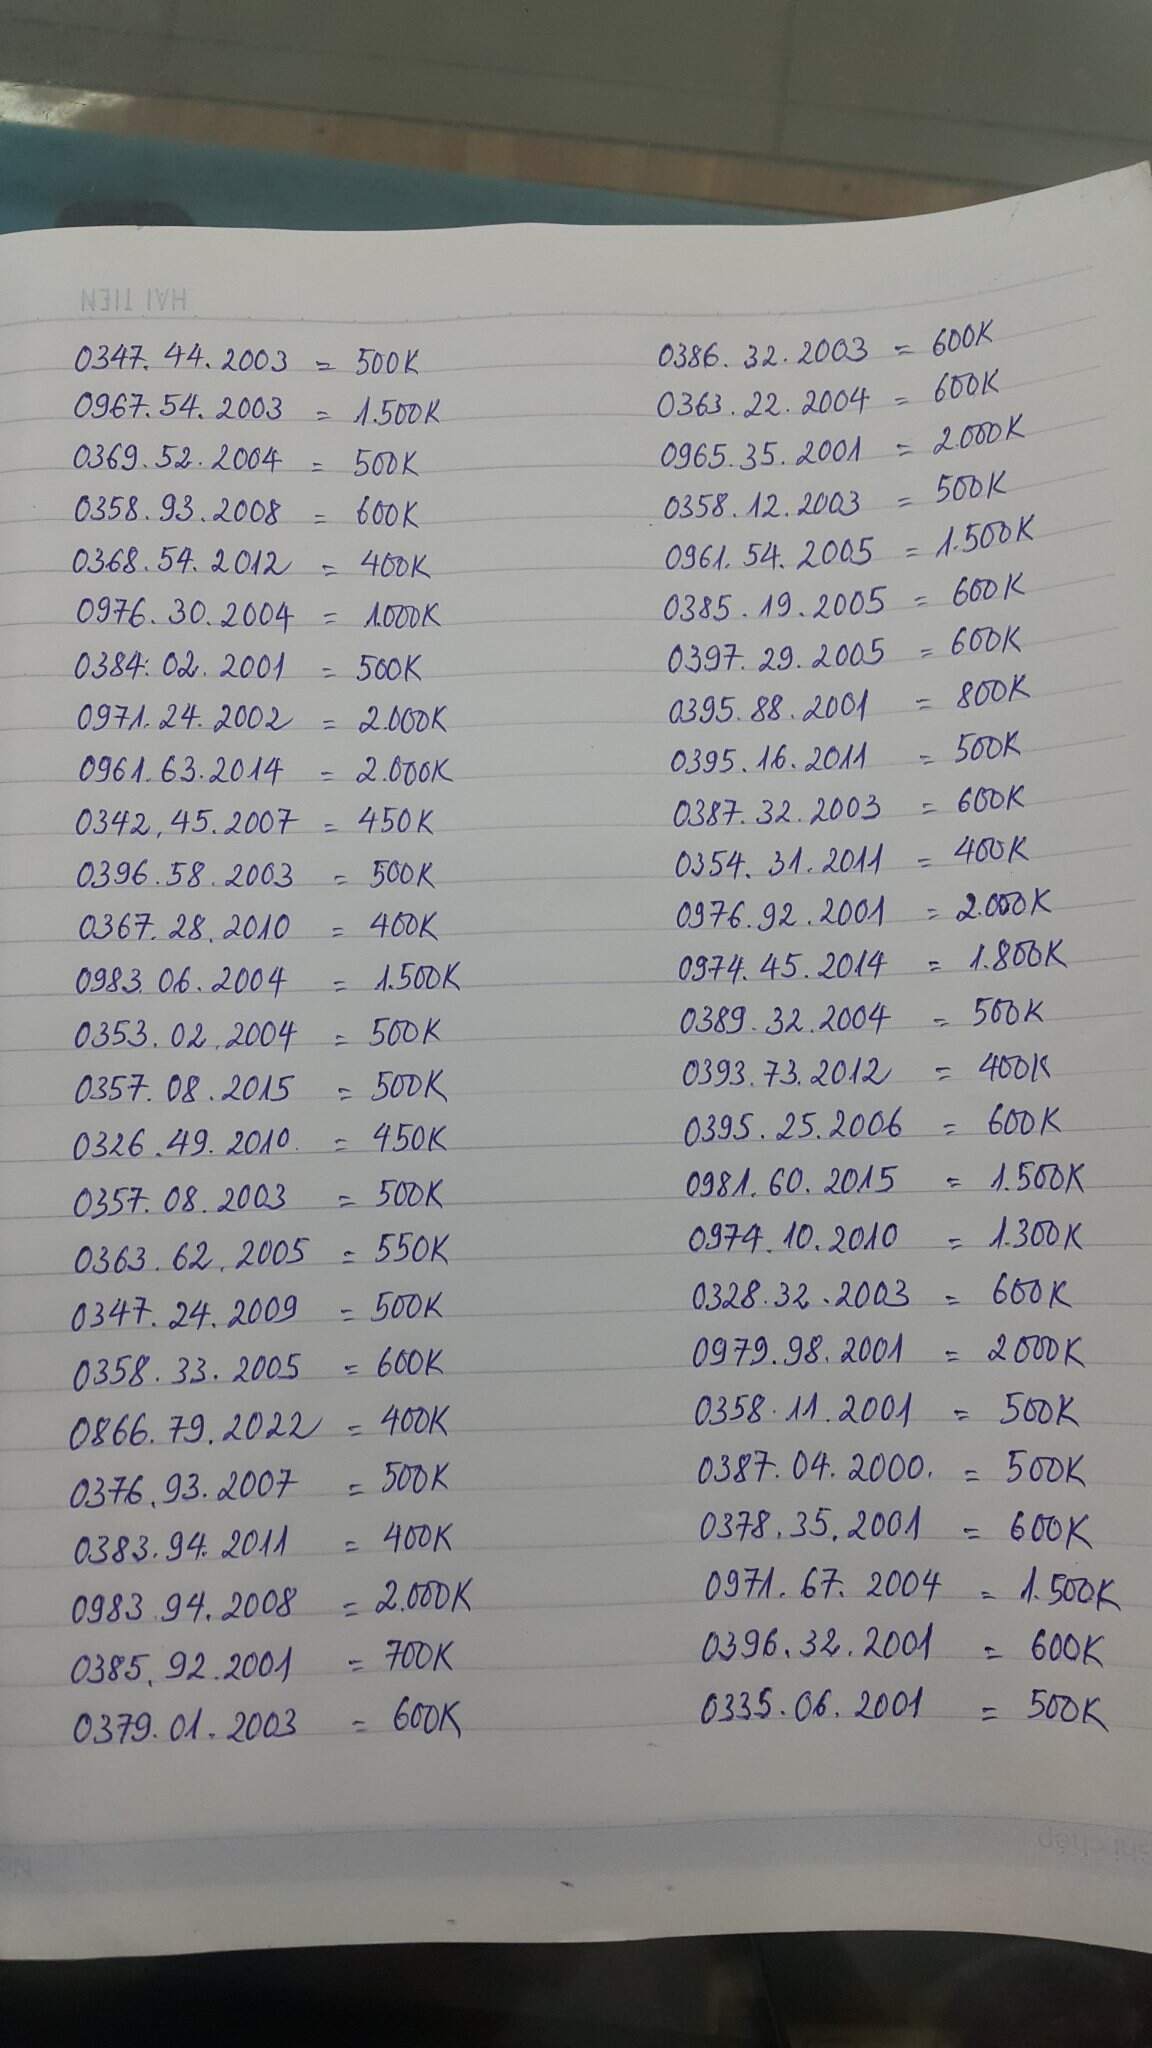 HẢI TIẾN
0347.44.2003 = 500K
0967.54.2003 = 1.500K
0369.52.2004 = 500K
0358.93.2008 = 600K
0368.54.2012 = 400K
0976.30.2004 = 1.000K
0384.02.2001 = 500K
0971.24.2002 = 2.000K
0961.63.2014 = 2.000K
0342.45.2007 = 450K
0396.58.2003 = 500K
0367.28.2010 = 400K
0983.06.2004 = 1.500K
0353.02.2004 = 500K
0357.08.2015 = 500K
0326.49.2010. = 450K
0357.08.2003 = 500K
0363.62.2005 = 550K
0347.24.2009 = 500K
0358.33.2005 = 600K
0866.79.2022 = 400K
0376.93.2007 = 500K
0383.94.2011 = 400K
0983.94.2008 = 2.000K
0385.92.2001 = 700K
0379.01.2003 = 600K
0386.32.2003 = 600K
0363.22.2004 = 600K
0965.35.2001 = 2.000K
0358.12.2003 = 500K
0961.54.2005 = 1.500K
0385.19.2005 = 600K
0397.29.2005 = 600K
0395.88.2001 = 800K
0395.16.2011 = 500K
0387.32.2003 = 600K
0354.31.2011 = 400K
0976.92.2001 = 2.000K
0974.45.2014 = 1.800K
0389.32.2004 = 500K
0393.73.2012 = 400K
0395.25.2006 = 600K
0981.60.2015 = 1.500K
0974.10.2010 = 1.300K
0328.32.2003 = 600K
0979.98.2001 = 2000K
0358.11.2001 = 500K
0387.04.2000. = 500K
0378.35.2001 = 600K
0971.67.2004 = 1.500K
0396.32.2001 = 600K
0335.06.2001 = 500K